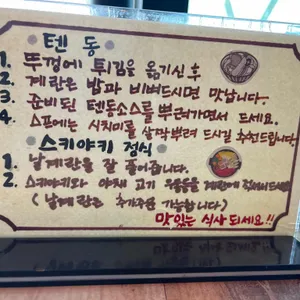 텐동
1. 뚜껑에 튀김을 옮기신 후
2. 계란은 밥과 비벼드시면 맛납니다.
3. 준비된 텐동소스를 뿌려가면서 드세요.
4. 스프에는 시치미를 살짝뿌려 드시길 추천드립니다.
스키야키 정식
1. 날계란을 잘 풀어줍니다.
2. 스키야키와 야채 고기 계란에
(날계란은 추가주문 가능합니다)
맛있는 식사되세요!!